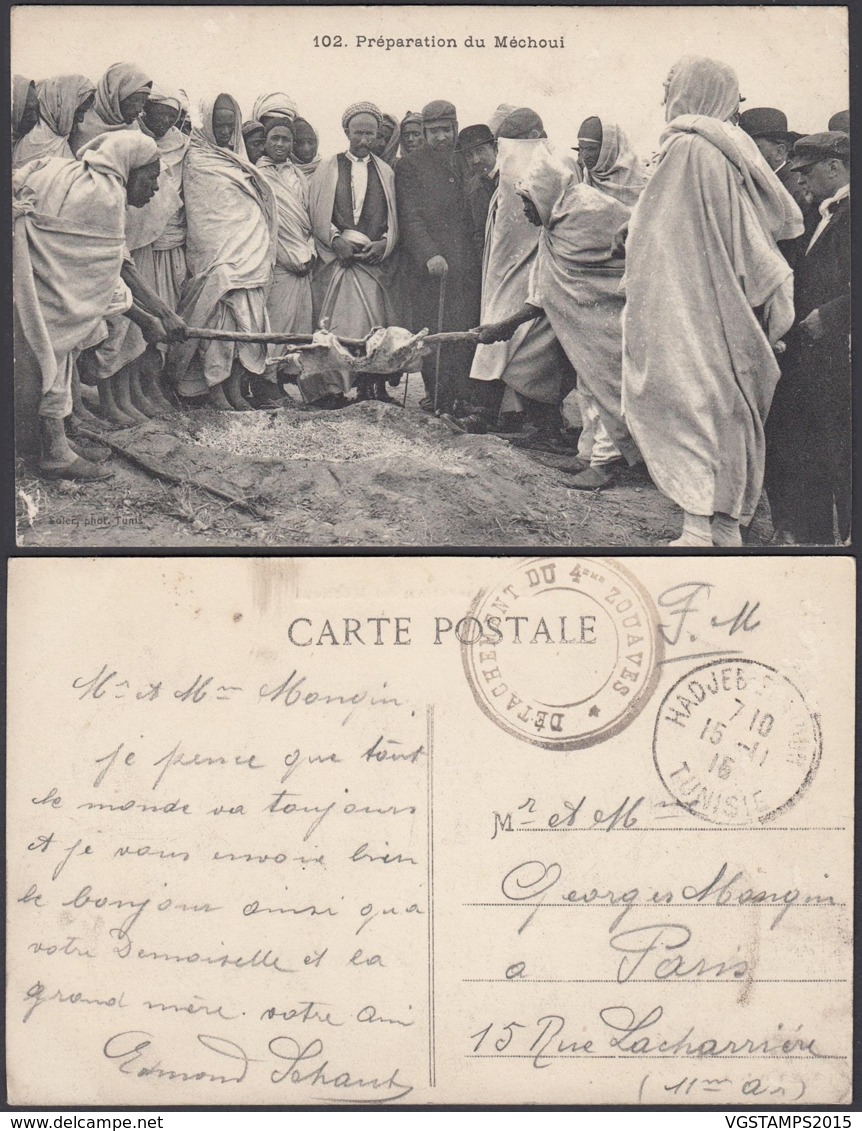 102. Préparation du Méchoui
Soler, phot. Tunis
CARTE POSTALE
DÉTACHEMENT DU 4EME ZOUAVES
F. M
HADJEB
7 10
15 - 11
16
TUNISIE
Mr et Mme Mangin
je pence que tout
le monde va toujours
et je vous envoie bien
le bonjour ainsi qu a
votre Demoiselle et la
grand mère. votre ami
Edmond
Mr et Mme
Georges Mangin
a Paris
15 Rue Lacharrière
(11me ar)
VGSTAMPS2015